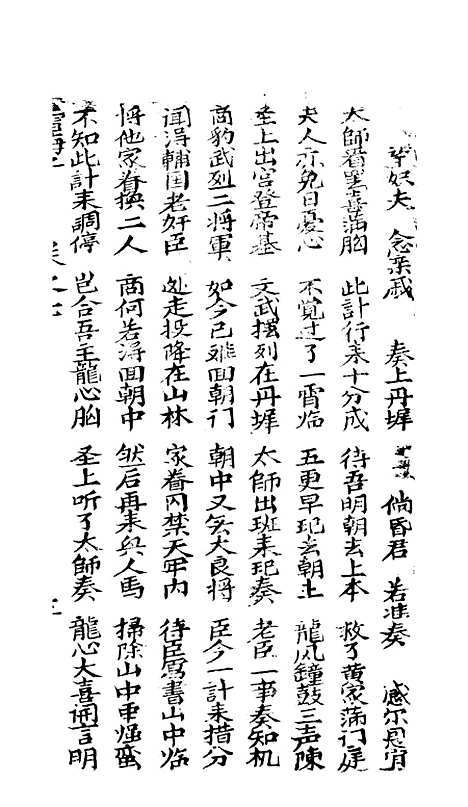 辛奴夫 念亲戚 奏上丹墀 倘昏君 若准奏 感尔恩宜
太師看罢喜满胸 此計行来十分成 待吾明朝去上本 救了黄家满门庭
夫人亦免日憂心 不覚过了一霄临 五更早起去朝王 龍凤鐘鼓三声陳
圣上出宫登帝基 文武摆列在丹墀 太師出班来把奏 老臣一事奏知机
商豹武列二將軍 如今已难回朝门 朝中又失大良將 臣今一計来措分
闻淂輔国老奸臣 处走投降在山林 家眷囚禁天牢内 待臣写書山中临
将他家眷换二人 商何若淂回朝中 然后再来兴人馬 掃除山中电煙蛮
不知此計来調停 岂合吾王龍心胸 圣上听了太師奏 龍心大喜開言明